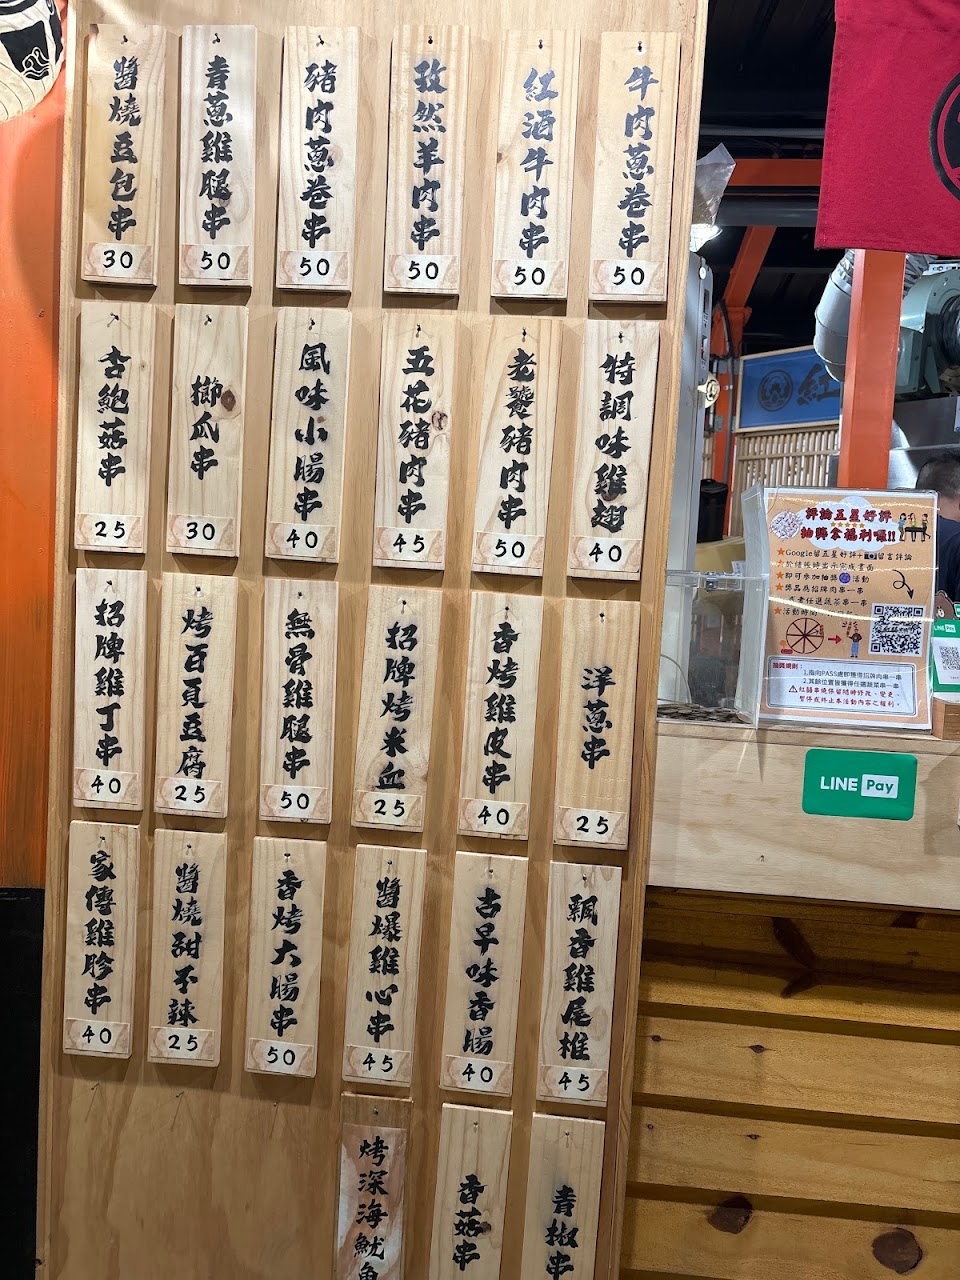 牛肉蔥卷串
50
紅酒牛肉串
50
孜然羊肉串
50
豬肉蔥卷串
50
青蔥雞腿串
50
醬燒豆包串
30
特調味雞翅
40
老饕豬肉串
50
五花豬肉串
45
風味小腸串
40
櫛瓜串
30
杏鮑菇串
25
洋蔥串
25
香烤雞皮串
40
招牌烤米血
25
無骨雞腿串
50
烤百頁豆腐
25
招牌雞丁串
40
飄香雞尾椎
45
古早味香腸
40
醬爆雞心串
45
香烤大腸串
50
醬燒甜不辣
25
家傳雞胗串
40
青椒串
香菇串
烤深海魷魚
紅
評論五星好評
抽獎拿福利喔!!
★Google留五星好評+留言評論
於結帳時出示完成畫面
★即可參加抽獎活動
★獎品為招牌肉串一串
或者任選蔬菜串一串
抽獎規則：
1.指向PASS處即獲得招牌肉串一串
2.其餘位置皆獲得任選蔬菜串一串
紅鬍串燒保留隨時修改、變更、
暫停或終止本活動內容之權利。
LINE Pay
LINE Pay